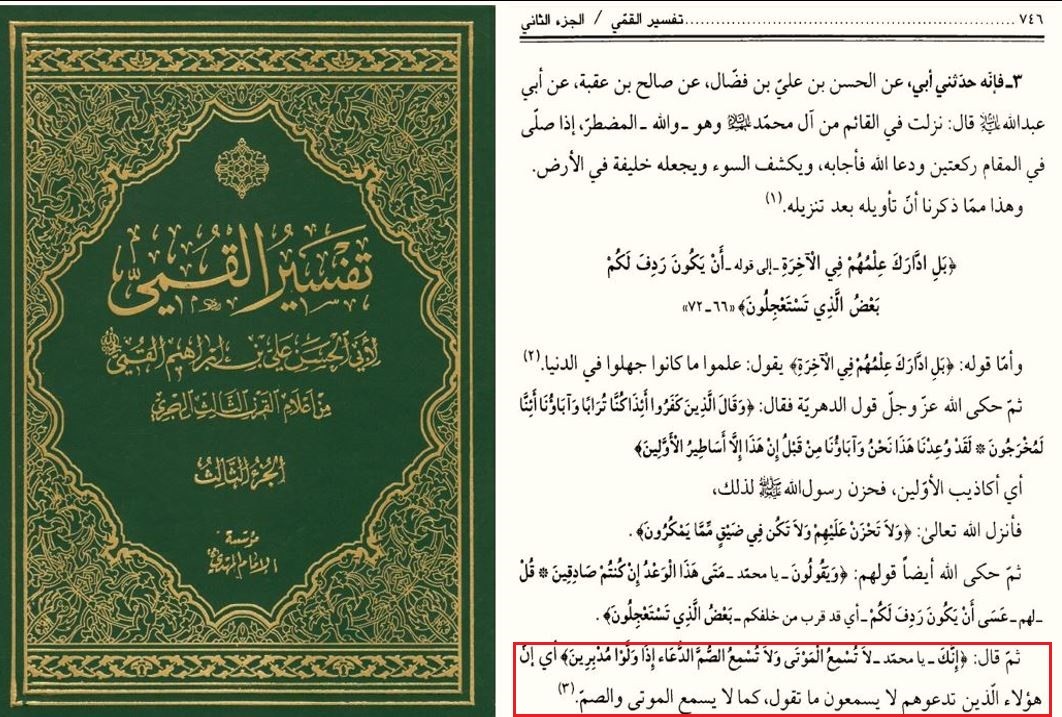 تفسير القمي
لأبي الحسن علي بن إبراهيم القمي
من أعلام القرن الثالث الهجري
الجزء الثالث
مؤسسة
الإمام المهدي
٧٤٦ ........ تفسير القمّي / الجزء الثاني
٣ـ فإنّه حدّثني أبي، عن الحسن بن عليّ بن فضّال، عن صالح بن عقبة، عن أبي
عبدالله قال: نزلت في القائم من آل محمّد وهو ـ والله ـ المضطرّ، إذا صلّى
في المقام ركعتين ودعا الله فأجابه، ويكشف السوء ويجعله خليفة في الأرض.
وهذا ممّا ذكرنا أنّ تأويله بعد تنزيله.(١)
﴿بَلِ ادَّارَكَ عِلْمُهُمْ فِي الْآخِرَةِ ـ إلى قوله ـ أَنْ يَكُونَ رَدِفَ لَكُمْ
بَعْضُ الَّذِي تَسْتَعْجِلُونَ﴾ «٦٦ـ٧٢»
وأمّا قوله: ﴿بَلِ ادَّارَكَ عِلْمُهُمْ فِي الْآخِرَةِ﴾ يقول: علموا ما كانوا جهلوا في الدنيا.(٢)
ثمّ حكى الله عزّ وجلّ قول الدهريّة فقال: ﴿وَقَالَ الَّذِينَ كَفَرُوا أَئِذَا كُنَّا تُرَابًا وَآبَاؤُنَا أَئِنَّا
لَمُخْرَجُونَ * لَقَدْ وُعِدْنَا هَذَا نَحْنُ وَآبَاؤُنَا مِنْ قَبْلُ إِنْ هَذَا إِلَّا أَسَاطِيرُ الْأَوَّلِينَ﴾
أي أكاذيب الأوّلين، فحزن رسول الله ﷺ لذلك،
فأنزل الله تعالىٰ: ﴿وَلَا تَحْزَنْ عَلَيْهِمْ وَلَا تَكُنْ فِي ضَيْقٍ مِّمَّا يَمْكُرُونَ﴾.
ثمّ حكى الله أيضاً قولهم: ﴿وَيَقُولُونَ ـ يا محمّد ـ مَتَى هَذَا الْوَعْدُ إِنْ كُنْتُمْ صَادِقِينَ * قُلْ
ـ لهم ـ عَسَى أَنْ يَكُونَ رَدِفَ لَكُمْ ـ أي قد قرب من خلفكم ـ بَعْضُ الَّذِي تَسْتَعْجِلُونَ﴾.
ثمّ قال: ﴿إِنَّكَ ـ يا محمّد ـ لَا تُسْمِعُ الْمَوْتَى وَلَا تُسْمِعُ الصُّمَّ الدُّعَاء إِذَا وَلَّوْا مُدْبِرِينَ﴾ أي إنّ
هؤلاء الّذين تدعوهم لا يسمعون ما تقول، كما لا يسمع الموتى والصمّ.(٣)